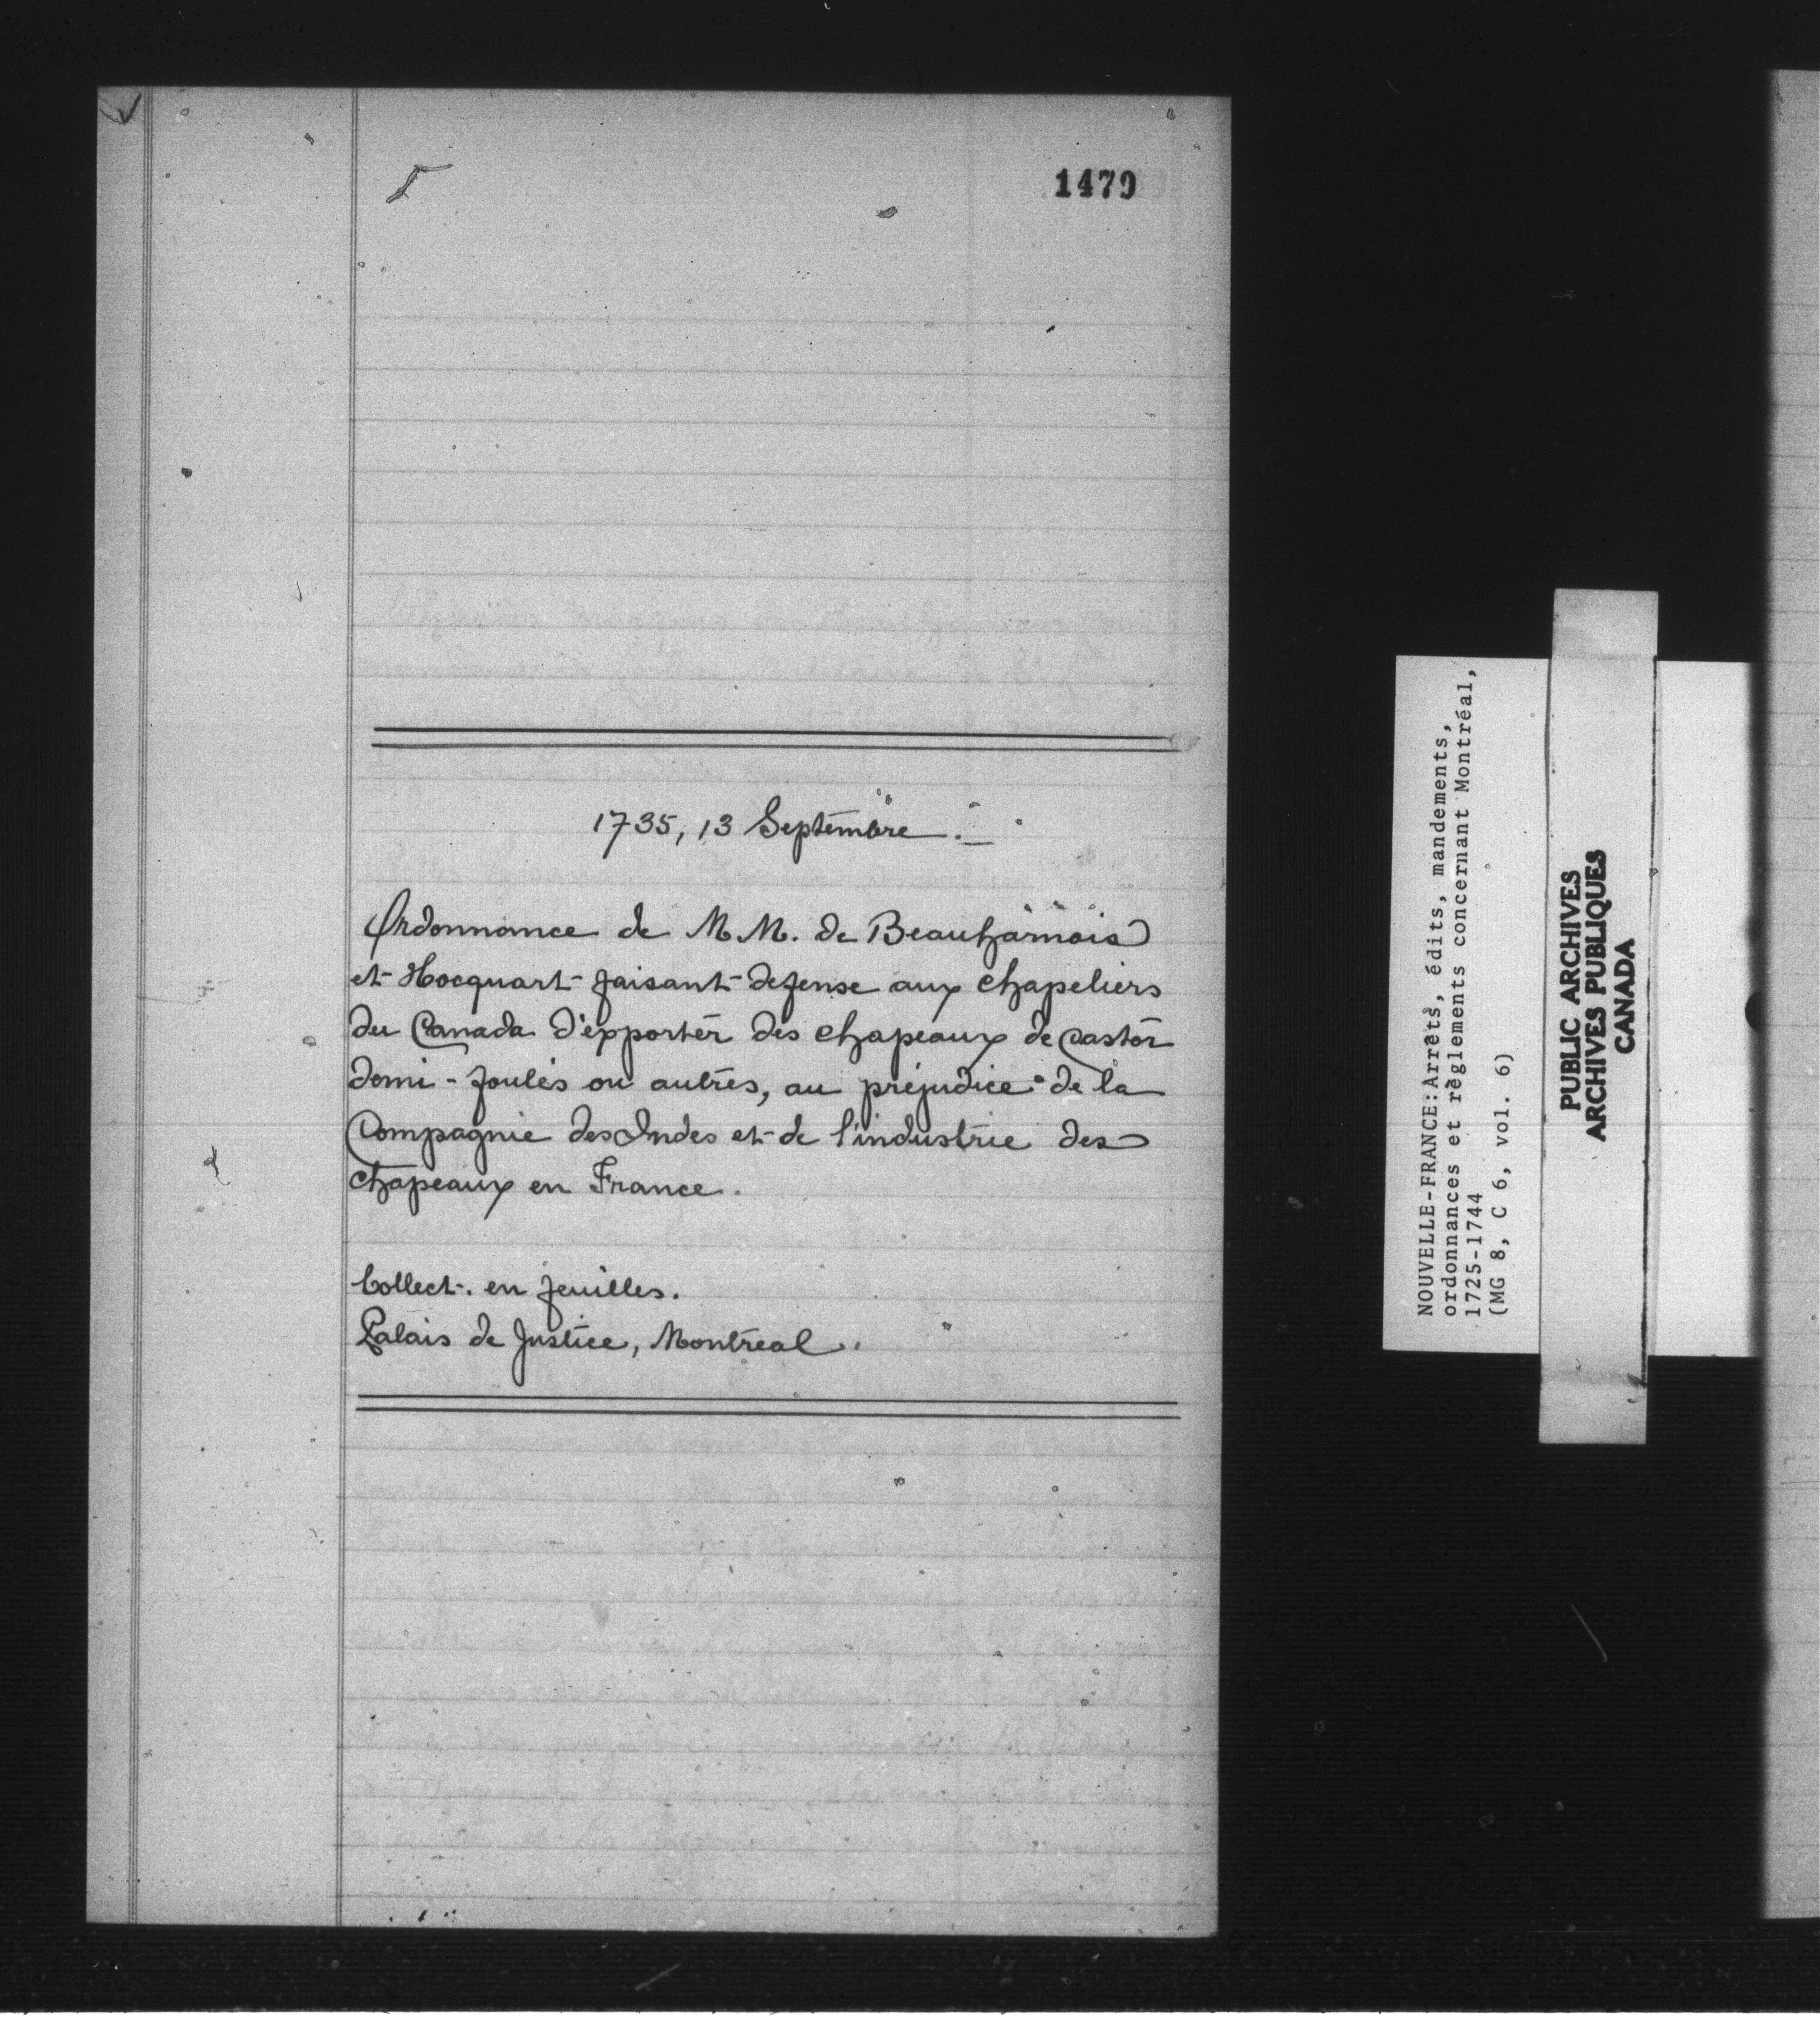 1479
1735, 13 Septembre.
Ordonnance de M M. de Beauharnois
et Hocquart faisant defense aux chapeliers
du Canada d'exporter des chapeaux de Castor
demi-foulés ou autres, au préjudice de la
Compagnie des Indes et de l'industrie des
chapeaux en France.
Collect. en feuilles.
Palais de Justice, Montréal.
NOUVELLE-FRANCE: Arrêts, édits, mandements,
ordonnances et règlements concernant Montréal,
1725-1744
(MG 8, C 6, vol. 6)
PUBLIC ARCHIVES
ARCHIVES PUBLIQUES
CANADA